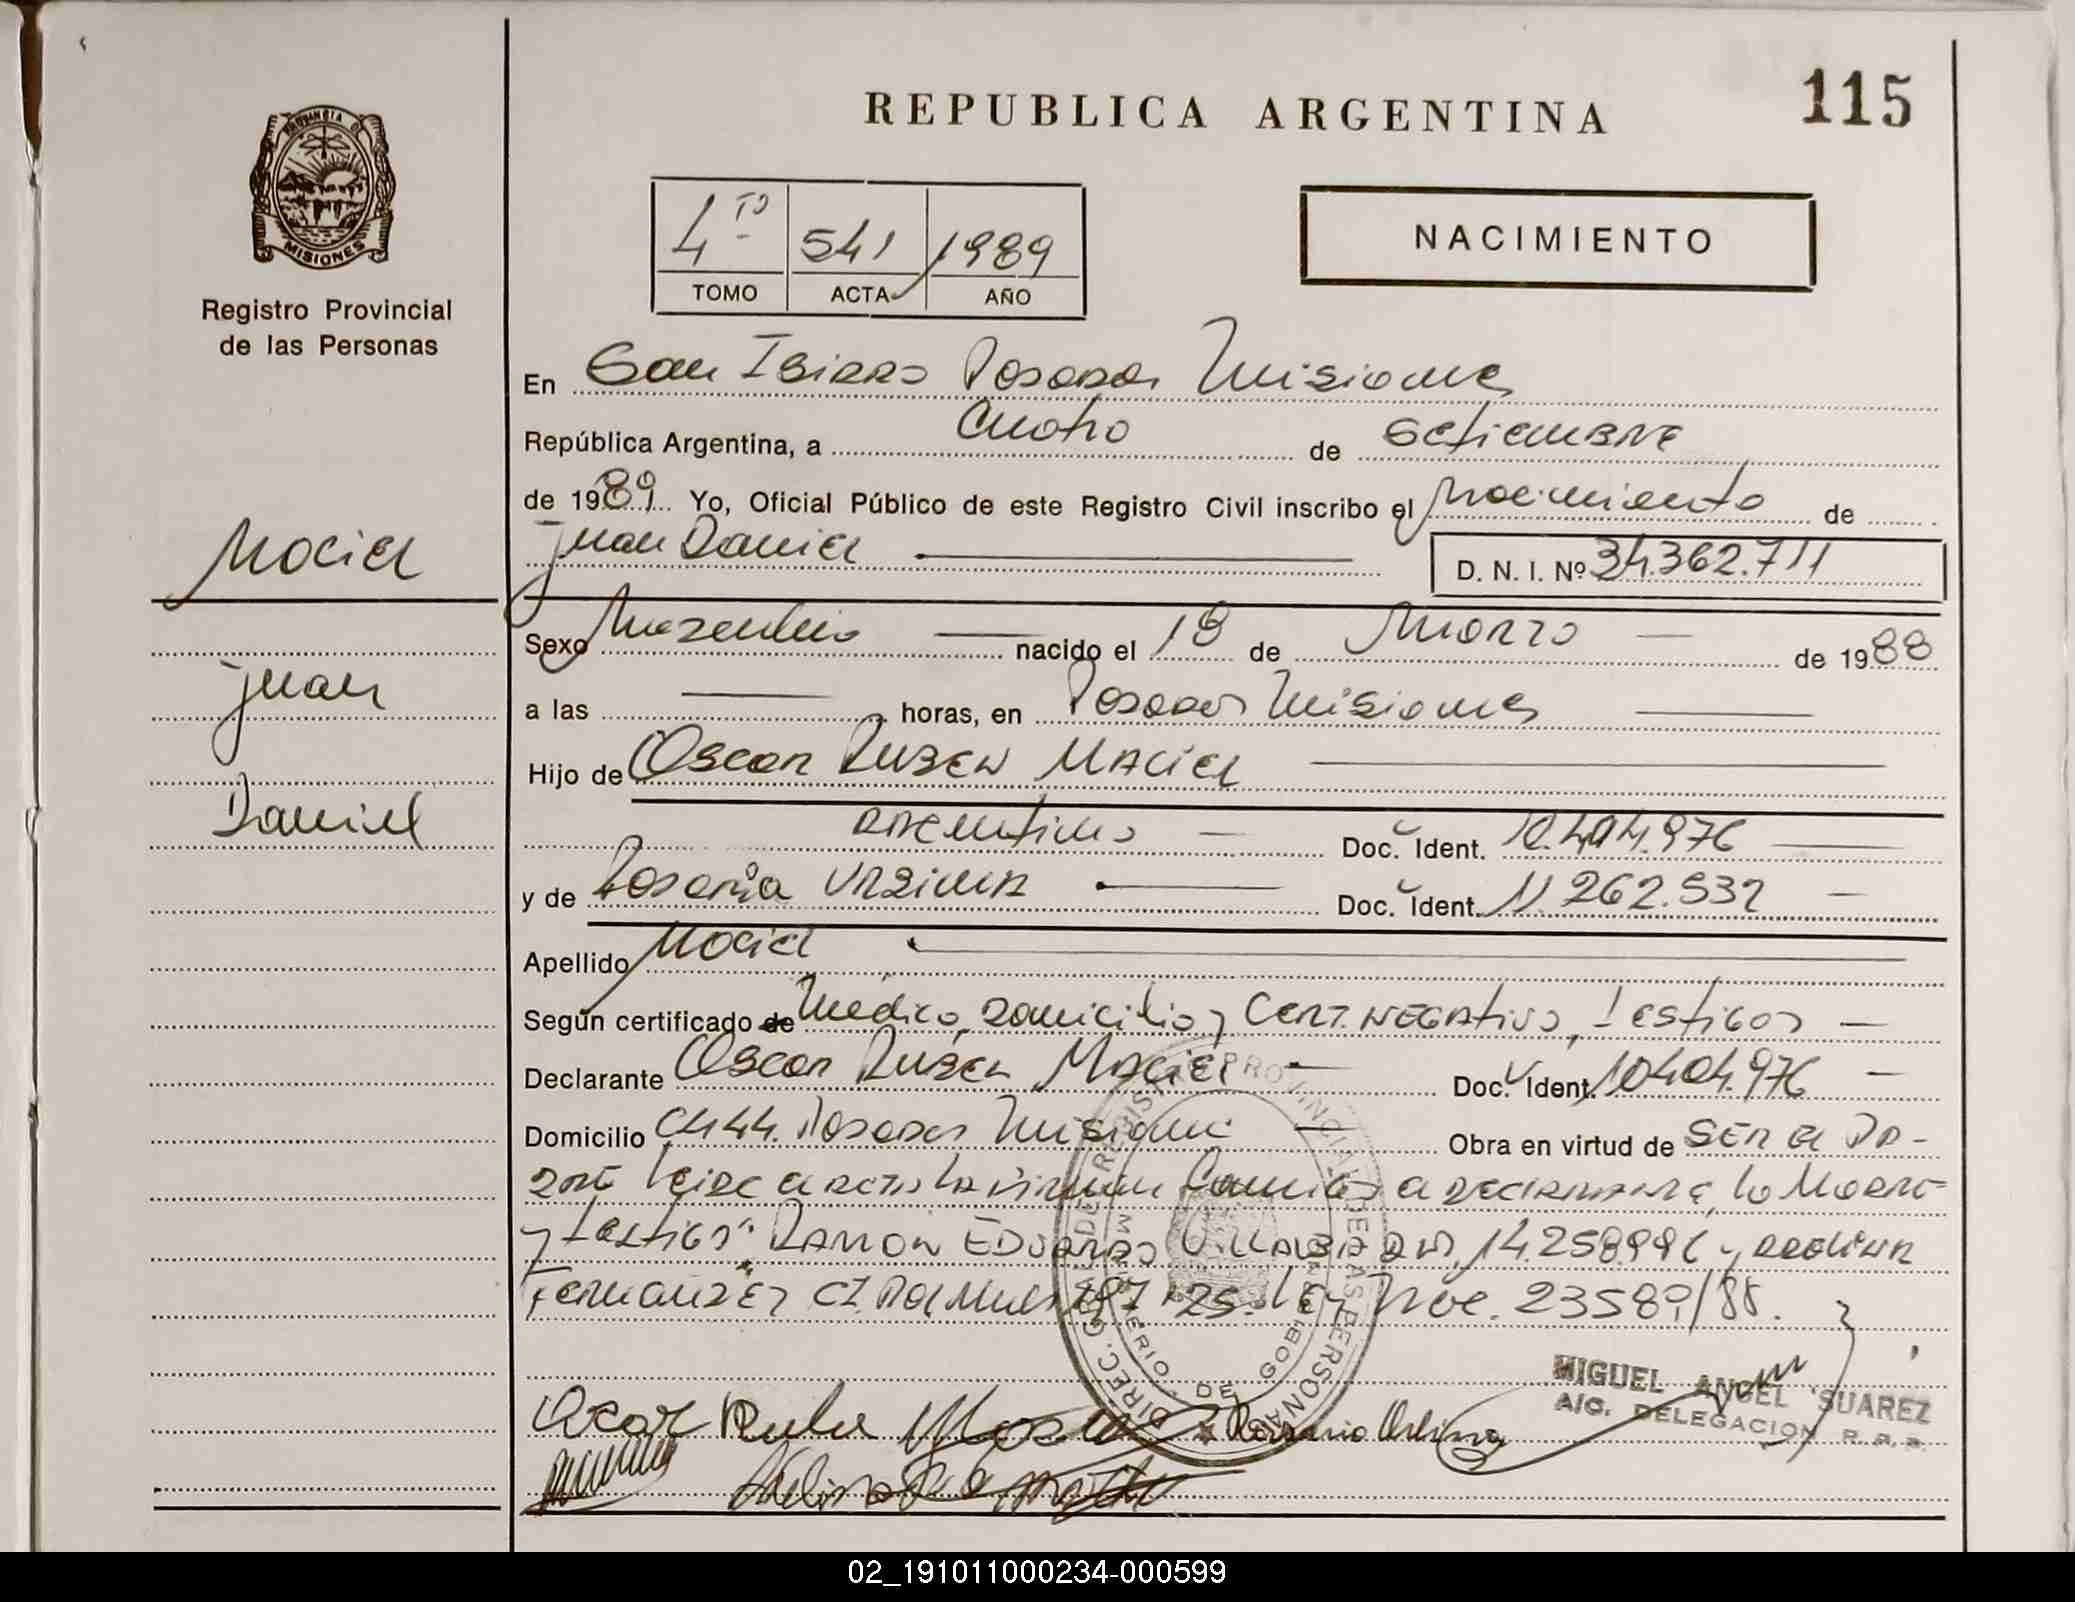 REPUBLICA ARGENTINA
115
PROVINCIA DE
MISIONES
Registro Provincial
de las Personas
4 TO
541
1989
TOMO
ACTA
AÑO
NACIMIENTO
En San Isidro Posadas Misiones
República Argentina, a cuatro de Setiembre
de 1989. Yo, Oficial Público de este Registro Civil inscribo el Nacimiento de
Maciel
Juan Daniel
D. N. I. Nº 34.362.711
Sexo Masculino nacido el 18 de Marzo de 1988
Juan
a las horas, en Posadas Misiones
Hijo de Oscar Ruben Maciel
Daniel
argentino Doc. Ident. 10.404.976
y de Rosaria Urbina Doc. Ident. 11.262.532
Apellido Maciel
Según certificado de Médico, domicilio, Cert. Negativo, Testigos
Declarante Oscar Ruben Maciel Doc. Ident. 10.404.976
Domicilio C. 144. Posadas Misiones Obra en virtud de SER el Pa-
dre el acta la firman el declarante, la Madre
y testigos: Ramon Eduardo Villalba DNI. 14.258.996 y
Fernandez CI. Pol. Mnes 25. Ley Nac. 23589/88.
DIREC. GRAL. DE REGISTRO PROVINCIAL DE LAS PERSONAS
MINISTERIO DE GOBIERNO
Oscar Ruben Maciel
Rosario Urbina
MIGUEL ANGEL SUAREZ
A/C. DELEGACION R. P. P.
02_191011000234-000599